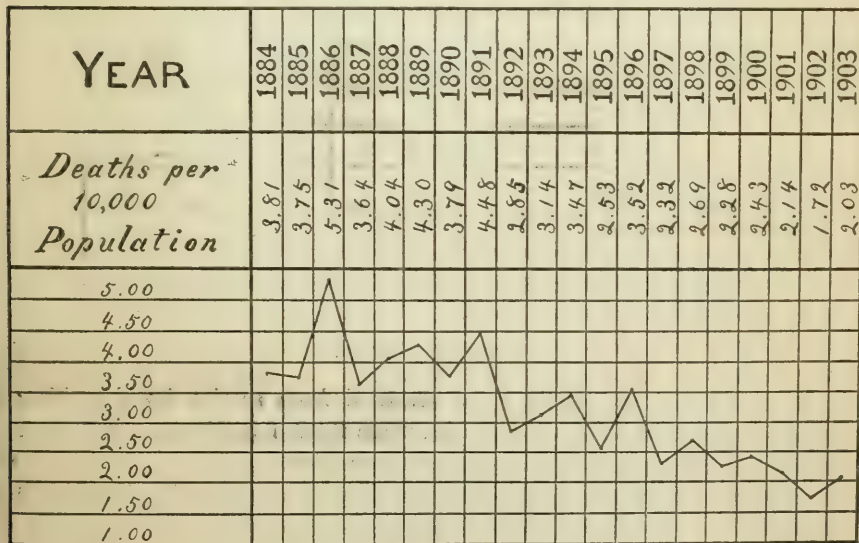 YEAR 1884 1885 1886 1887 1888 1889 1890 1891 1892 1893 1894 1895 1896 1897 1898 1899 1900 1901 1902 1903
Deaths per
10,000
Population
3.81 3.75 5.31 3.64 4.04 4.30 3.79 4.48 2.85 3.14 3.47 2.53 3.52 2.32 2.69 2.28 2.43 2.14 1.72 2.03
5.00
4.50
4.00
3.50
3.00
2.50
2.00
1.50
1.00